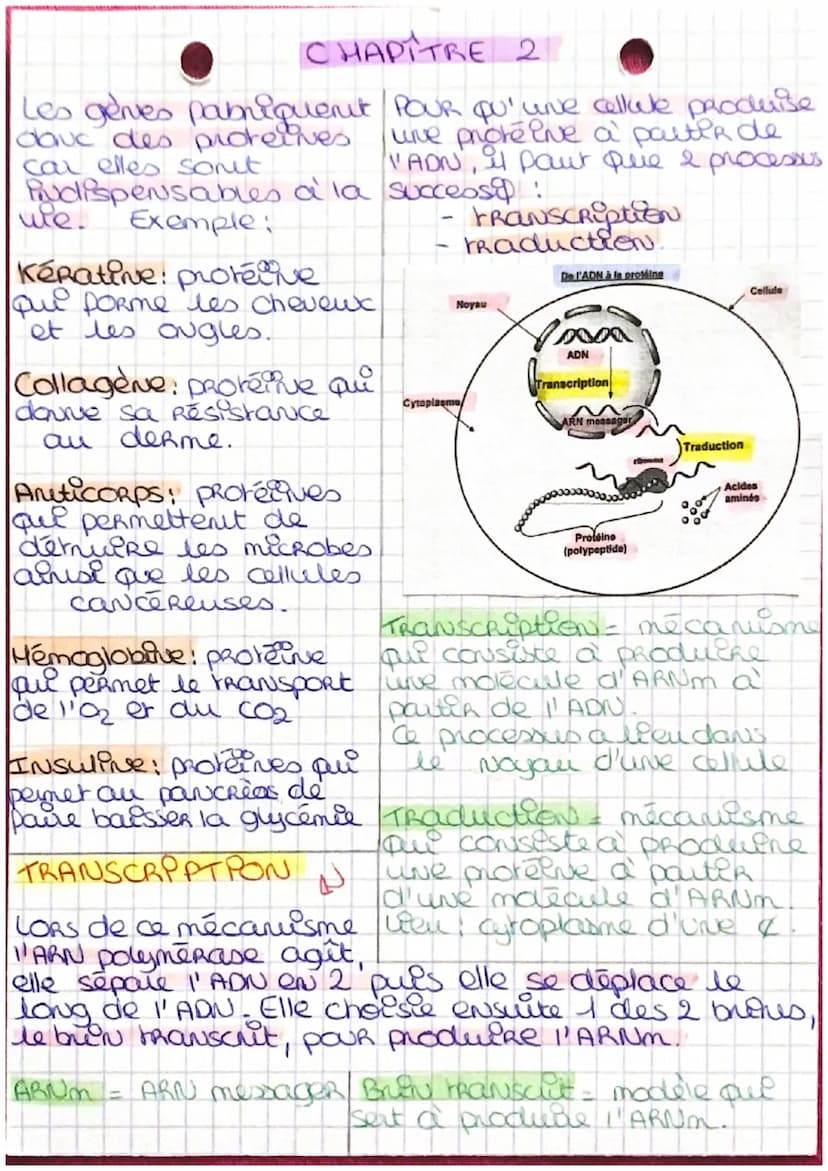 CHAPÎTRE 2
Les gènes fabriquent
donc des protéines
car elles sont
indispensables à la
vie. Exemple :
Kératine : protéine
qui forme les cheveux
et les ongles.
Collagène : protéine qui
donne sa résistance
au derme.
Anticorps : protéines
qui permettent de
détruire les microbes
ainsi que les cellules
cancéreuses.
Hémoglobine : protéine
qui permet le transport
de l'O2 et du CO2
Insuline : protéines qui
permet au pancréas de
faire baisser la glycémie
Pour qu'une cellule produise
une protéine à partir de
l'ADN, il faut que 2 processus
successif :
- transcription
- traduction.
De l'ADN à la protéine
Cellule
Noyau
ADN
Transcription
Cytoplasme
ARN messager
Traduction
ribosome
Acides
aminés
Protéine
(polypeptide)
Transcription = mécanisme
qui consiste à produire
une molécule d'ARNm à
partir de l'ADN.
Ce processus a lieu dans
le noyau d'une cellule
Traduction = mécanisme
qui consiste à produire
une protéine à partir
d'une molécule d'ARNm.
Lieu : cytoplasme d'une ¢.
TRANSCRIPTION
Lors de ce mécanisme
l'ARN polymérase agît,
elle sépare l'ADN en 2 puis elle se déplace le
long de l'ADN. Elle choisie ensuite 1 des 2 brins,
le brin transcrit, pour produire l'ARNm.
ARNm = ARN messager
Brin transcrit = modèle qui
sert à produire l'ARNm.